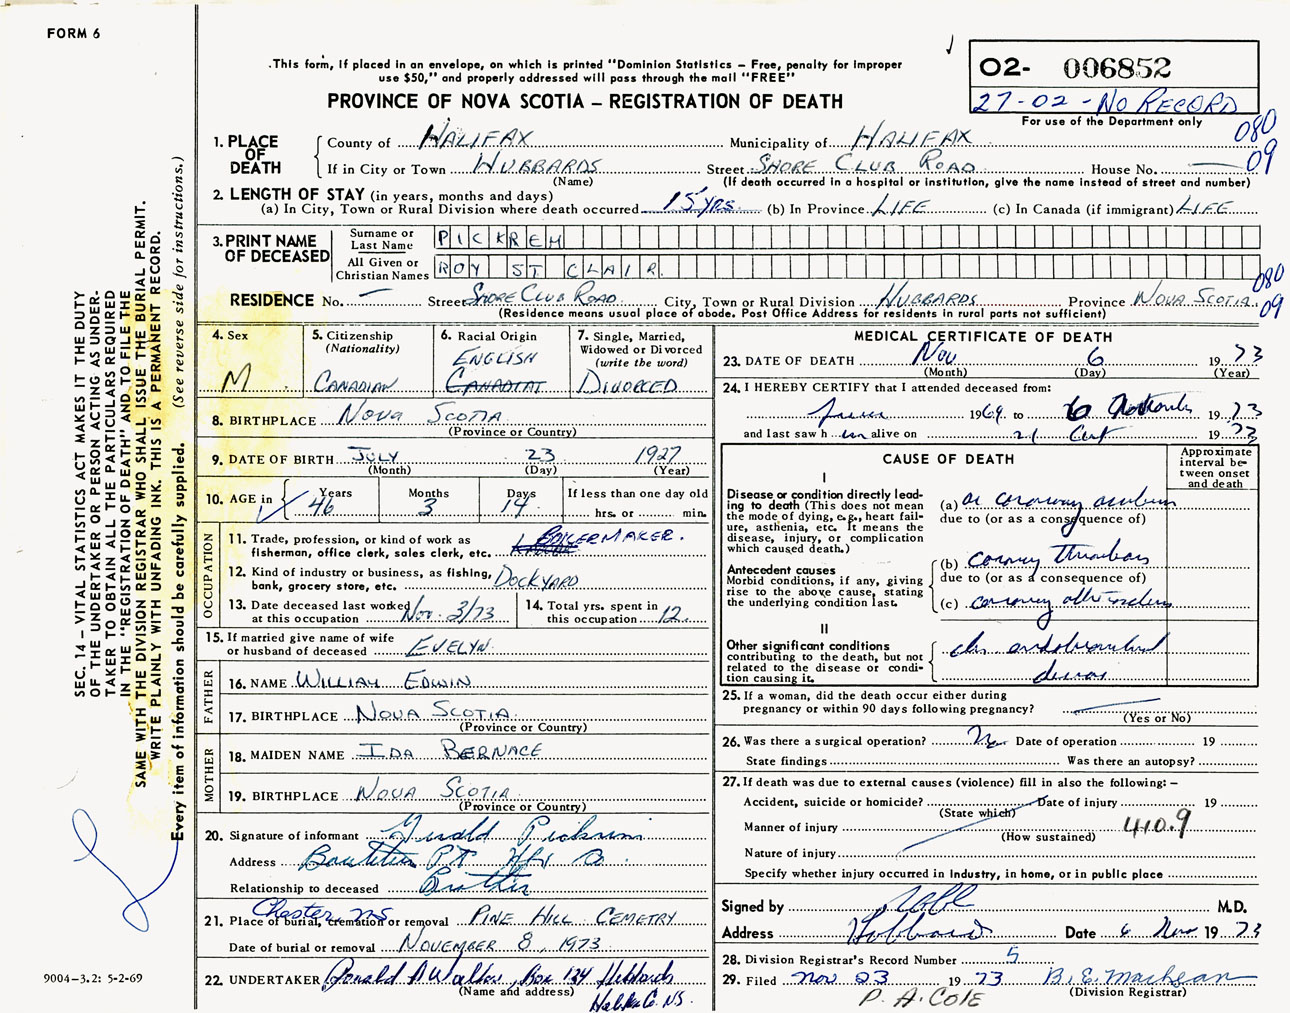 FORM 6
.This form, if placed in an envelope, on which is printed "Dominion Statistics – Free, penalty for improper
use $50," and properly addressed will pass through the mail "FREE"
PROVINCE OF NOVA SCOTIA – REGISTRATION OF DEATH
O2- 006852
27-02 - NO RECORD
For use of the Department only
080
09
1. PLACE OF DEATH
County of HALIFAX Municipality of HALIFAX
If in City or Town HUBBARDS Street SHORE CLUB ROAD House No. —
(Name) (If death occurred in a hospital or institution, give the name instead of street and number)
2. LENGTH OF STAY (in years, months and days)
(a) In City, Town or Rural Division where death occurred 15 yrs. (b) In Province LIFE (c) In Canada (if immigrant) LIFE
3. PRINT NAME OF DECEASED
Surname or Last Name PICKREM
All Given or Christian Names ROY ST CLAIR
080
09
RESIDENCE No. — Street SHORE CLUB ROAD City, Town or Rural Division HUBBARDS Province NOVA SCOTIA
(Residence means usual place of abode. Post Office Address for residents in rural parts not sufficient)
4. Sex
M
5. Citizenship
(Nationality)
CANADIAN
6. Racial Origin
ENGLISH
7. Single, Married,
Widowed or Divorced
(write the word)
DIVORCED
8. BIRTHPLACE NOVA SCOTIA
(Province or Country)
9. DATE OF BIRTH JULY 23 1927
(Month) (Day) (Year)
10. AGE in Years Months Days If less than one day old
46 3 14 hrs. or min.
OCCUPATION
11. Trade, profession, or kind of work as
fisherman, office clerk, sales clerk, etc. BOILERMAKER.
12. Kind of industry or business, as fishing,
bank, grocery store, etc. DOCKYARD
13. Date deceased last worked
at this occupation Nov. 3/73
14. Total yrs. spent in
this occupation 12
15. If married give name of wife
or husband of deceased EVELYN
FATHER
16. NAME WILLIAM EDWIN
17. BIRTHPLACE NOVA SCOTIA
(Province or Country)
MOTHER
18. MAIDEN NAME IDA BERNACE
19. BIRTHPLACE NOVA SCOTIA
(Province or Country)
20. Signature of informant Gerald Pickrem
Address Boutiliers PT Hfx Co.
Relationship to deceased Brother
Chester NS
21. Place of burial, cremation or removal PINE HILL CEMETRY
Date of burial or removal NOVEMBER 8, 1973
22. UNDERTAKER Donald A Walker, Box 134 Hubbards
(Name and address)
Halifax Co. NS.
MEDICAL CERTIFICATE OF DEATH
23. DATE OF DEATH Nov 6 1973
(Month) (Day) (Year)
24. I HEREBY CERTIFY that I attended deceased from:
June 1969 to 6 1973
and last saw h im alive on 21 1973
CAUSE OF DEATH
Approximate interval between onset and death
I
Disease or condition directly leading to death (This does not mean the mode of dying, e.g., heart failure, asthenia, etc. It means the disease, injury, or complication which caused death.)
(a) coronary
due to (or as a consequence of)
Antecedent causes
Morbid conditions, if any, giving rise to the above cause, stating the underlying condition last.
(b) coronary thrombosis
due to (or as a consequence of)
(c) coronary
II
Other significant conditions
contributing to the death, but not related to the disease or condition causing it.
25. If a woman, did the death occur either during
pregnancy or within 90 days following pregnancy?
(Yes or No)
26. Was there a surgical operation? No Date of operation 19
State findings Was there an autopsy?
27. If death was due to external causes (violence) fill in also the following: –
Accident, suicide or homicide? Date of injury 19
(State which)
Manner of injury 410.9
(How sustained)
Nature of injury
Specify whether injury occurred in industry, in home, or in public place
Signed by M.D.
Address Hubbards Date 6 Nov 1973
28. Division Registrar's Record Number 5
29. Filed Nov 23 1973 B. E. MacLean
(Division Registrar)
P. A. COLE
SEC. 14 – VITAL STATISTICS ACT MAKES IT THE DUTY
OF THE UNDERTAKER OR PERSON ACTING AS UNDER-
TAKER TO OBTAIN ALL THE PARTICULARS REQUIRED
IN THE "REGISTRATION OF DEATH" AND TO FILE THE
SAME WITH THE DIVISION REGISTRAR WHO SHALL ISSUE THE BURIAL PERMIT.
WRITE PLAINLY WITH UNFADING INK. THIS IS A PERMANENT RECORD.
Every item of information should be carefully supplied. (See reverse side for instructions.)
9004–3.2: 5-2-69